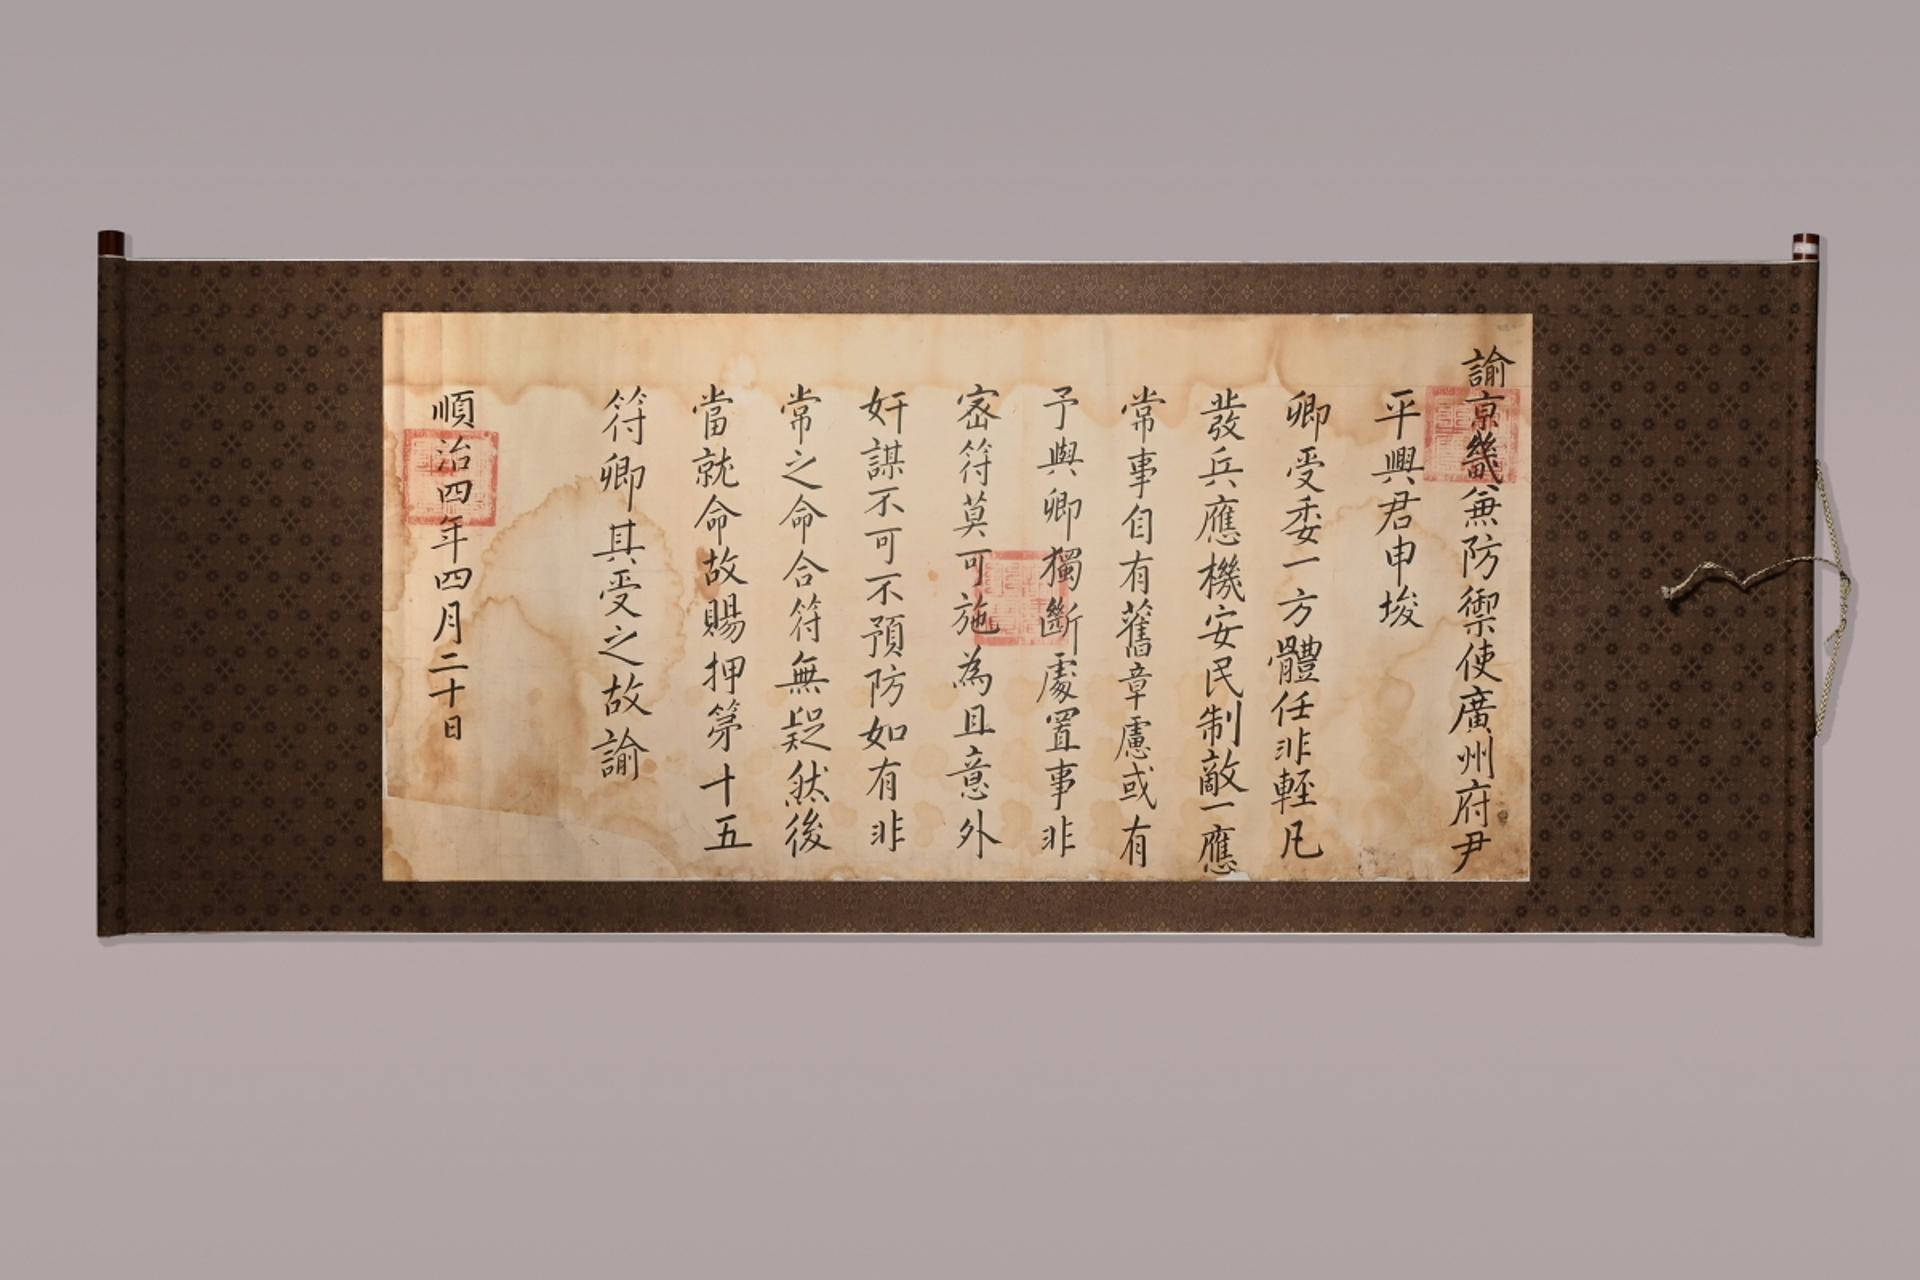 諭京畿兼防禦使廣州府尹
平興君申埈
卿受委一方體任非輕凡
發兵應機安民制敵一應
常事自有舊章慮或有
予與卿獨斷處置事非
密符莫可施為且意外
奸謀不可不預防如有非
常之命合符無疑然後
當就命故賜押第十五
符卿其受之故諭
順治四年四月二十日